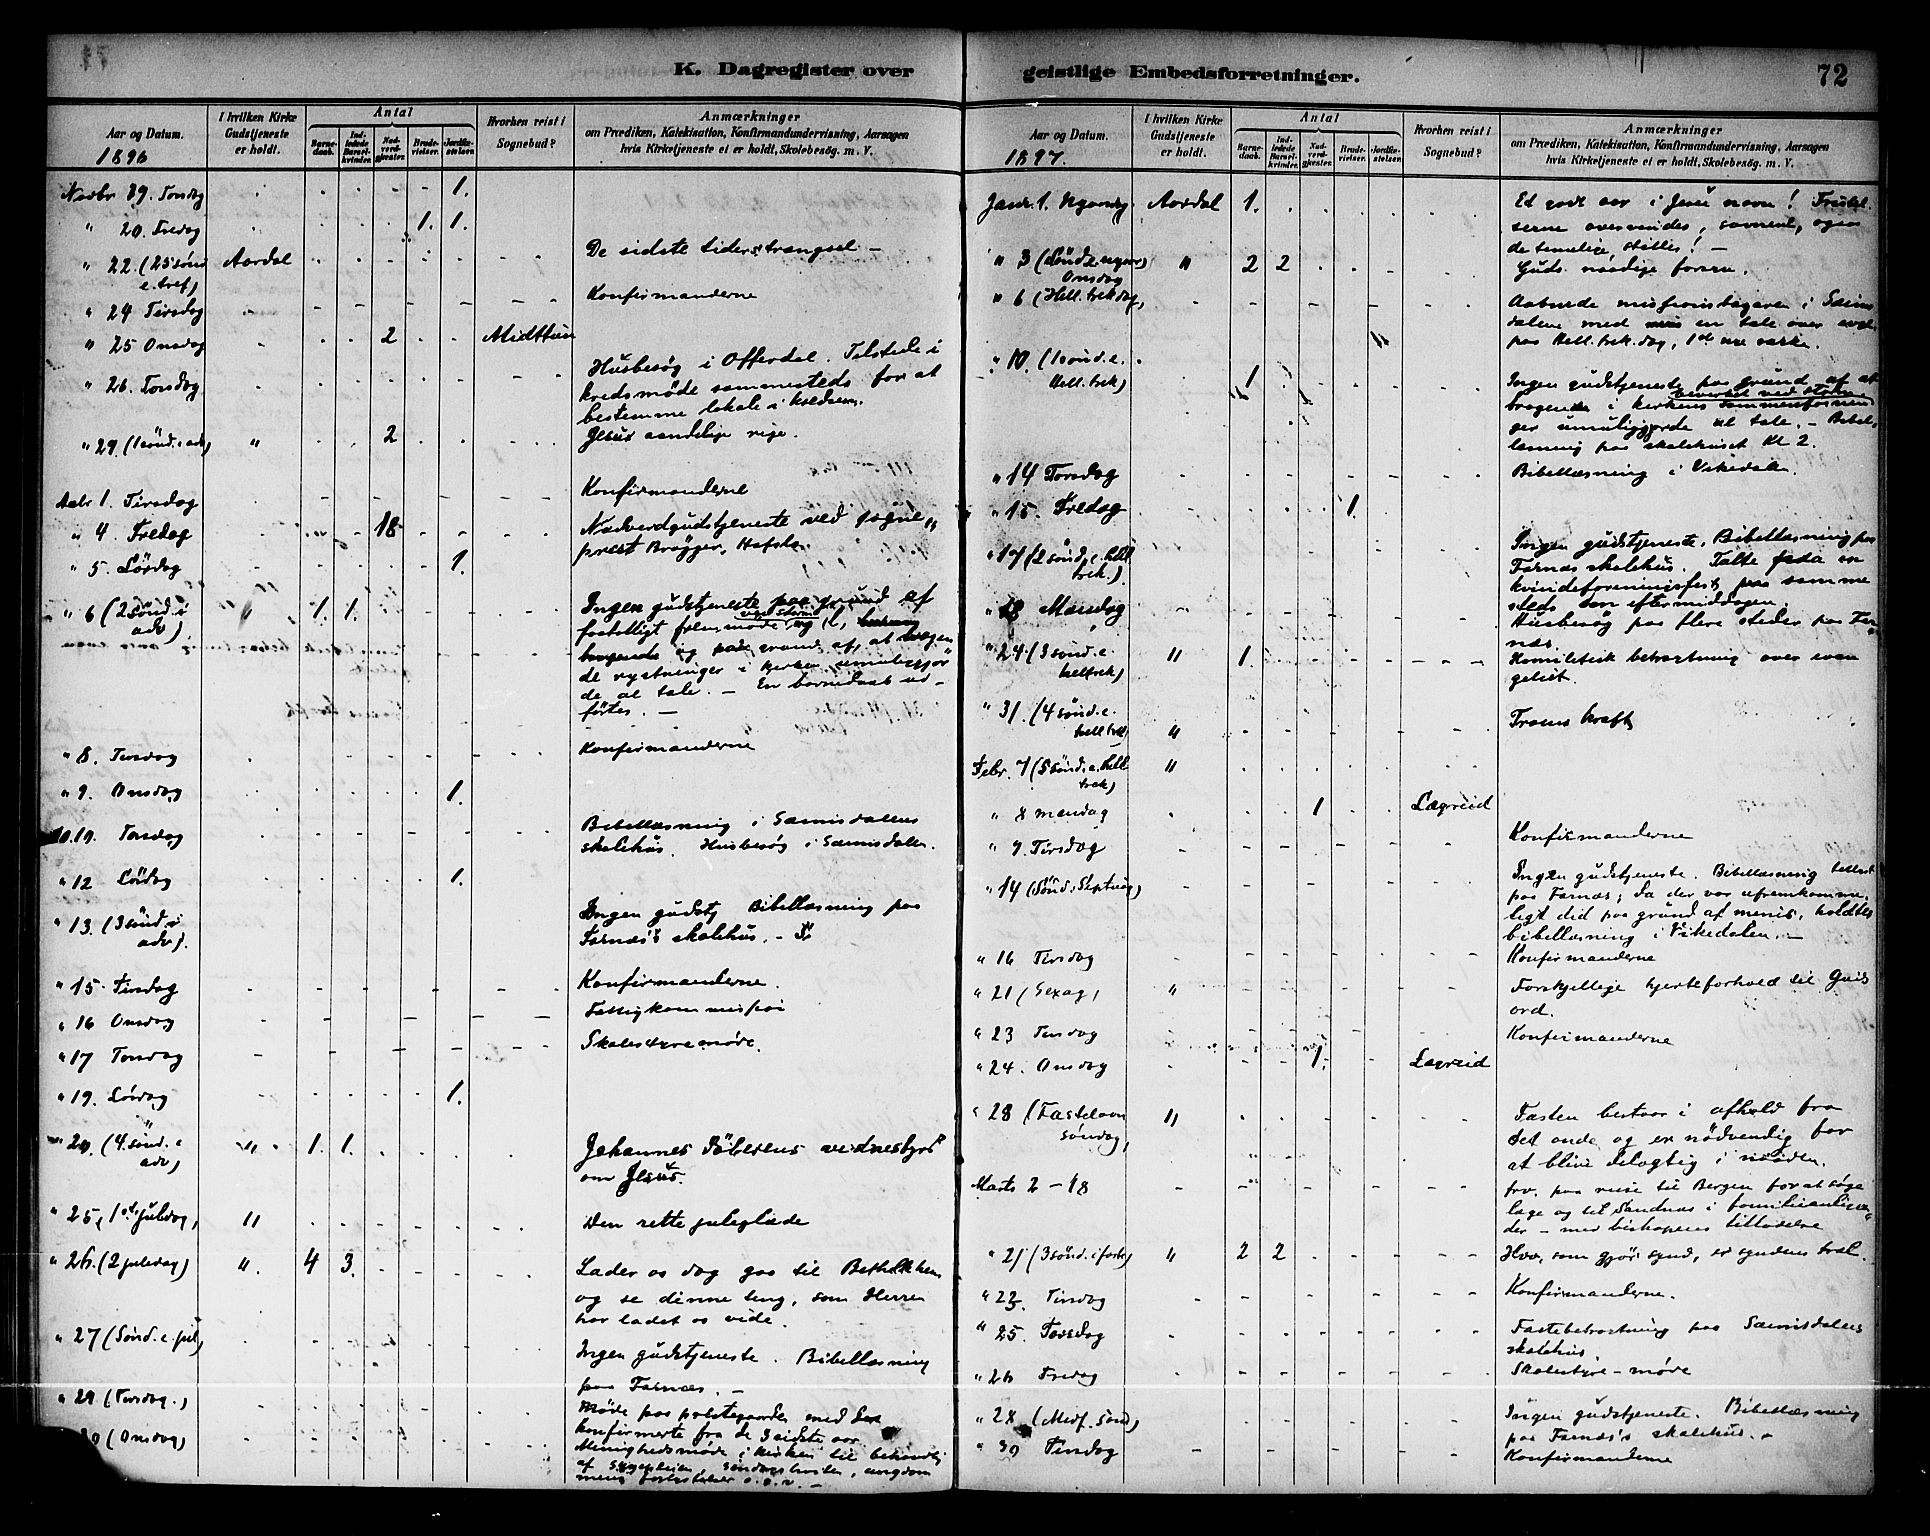 K. Dagregister over geistlige Embedsforretninger.
72
Aar og Datum.
1896
I hvilken Kirke Gudstjeneste er holdt.
Antal
Barnedaab.
Indledede Barselkvinder.
Nadverdgjester.
Brudevielser.
Jordfæstelser.
Hvorhen reist i Sognebud?
Anmærkninger
om Prædiken, Katekisation, Konfirmandundervisning, Aarsagen
hvis Kirketjeneste ei er holdt, Skolebesøg. m. V.
Novbr 19. Torsdag 1.
" 20. Fredag 1. 1.
" 22. (25 sønd e. tref) Aardal De sidste tiders trængsel –
" 24 Tirsdag Konfirmanderne
" 25 Onsdag 2 Midttun
" 26. Torsdag Husbesøg i Offerdal. Tilstede i
kredsmøde sammesteds for at
bestemme lokale i kredsen.
" 29. (1 sønd. i adv) " 2 Jesus aandelige rige.
1. Tirsdag Konfirmanderne
" 4. Fredag 18 Nadverdgudstjeneste ved sogne-
prest Brøgger, Hafslo
" 5. Lørdag 1.
" 6 (2 sønd. i adv) " 1. 1. Ingen gudstjeneste paa grund af
faatalligt fremmøde og
og paa grund af, at bragen
de rystninger i kirken umuliggjor
de al tale. – En barnedaab ud-
førtes. –
" 8. Tirsdag Konfirmanderne
" 9. Onsdag 1.
10. Torsdag Bibellæsning i Sæmisdalens
skolehus. Husbesøg i Sæmisdalen.
" 12 Lørdag 1.
" 13. (3 sønd i adv). Ingen gudstj Bibellæsning paa
Farnæs's skolehus. –
" 15 Tirsdag Konfirmanderne.
" 16 Onsdag Fattigkommission
" 17 Torsdag Skolestyremøde.
" 19. Lørdag 1.
" 20. (4. sønd. i adv) " 1. 1. Johannes Døberens vidnesbyrd
om Jesus.
" 25, 1ste juledag, " Den rette juleglæde
" 26. (2 juledag) " 4 3. Lader os dog gaa til Bethlehem
og se denne ting, som Herren
har ladet os vide.
" 27 (Sønd. e. jul) Ingen gudstjeneste. Bibellæsning
paa Farnæs. –
" 29 (Tirsdag.) Møde paa præstegaarden med de
konfirmerte fra de 3 sidste aar
30 (Onsdag) Menighedsmøde i kirken til behandlg
af sygepleien, søndagshvilen, ungdom
mens forlystelser o.s.v. –
Aar og Datum.
1897.
I hvilken Kirke Gudstjeneste er holdt.
Antal
Barnedaab.
Indledede Barselkvinder.
Nadverdgjester.
Brudevielser.
Jordfæstelser.
Hvorhen reist i Sognebud?
Anmærkninger
om Prædiken, Katekisation, Konfirmandundervisning, Aarsagen
hvis Kirketjeneste ei er holdt, Skolebesøg. m. V.
Janr. 1. Nyaarsdag Aardal 1. Et godt aar i Jesu navn!
serne overvindes, savnene, ogsaa
de timelige stilles! –
" 3 (Sønd e. nyaar) " 2 2 Guds naadige forsyn.
" 6 Onsdag (Hell. trek. dag, Aabnede missionsbasaren i Sæmis
dalen med en tale over evgl.
paa Hell. trek. dag, 1ste række.
" 10. (1 sønd. e. Hell. trek) 1 Ingen gudstjeneste paa grund af at
bragende i kirkens sammenføinin
ger umuliggjorde al tale. – Bibel-
læsning paa skolehuset Kl 2.
" 14 Torsdag Bibellæsning i Vikedalen.
" 15. Fredag 1.
" 17 (2 sønd. e. hell. trek.) Ingen gudstjeneste, Bibellæsning paa
Farnæs skolehus. Talte paa en
kvindeforeningsfest paa samme
sted om eftermiddagen
" 18 Mandag Husbesøg paa flere steder paa Far-
næs.
" 24 (3 sønd. e. helltrek) " 1. Homiletisk betragtning over evan
geliet.
" 31. (4 sønd. e. hell trek) " Troens kraft
Febr. 7 (5 sønd. e. hell trek) "
" 8 mandag 1 Lægreid
" 9. Tirsdag Konfirmanderne
" 14 (Sønd. Septuag) Ingen gudstjeneste. Bibellæsning
paa Farnæs; da der var ufremkomme-
ligt did paa grund af menis, holdtes
bibellæsning i Vikedalen. –
" 16 Tirsdag Konfirmanderne
" 21 (Sexag, " Forskjellige hjerteforhold til Guds
ord.
" 23 Tirsdag Konfirmanderne
" 24. Onsdag 1. Lægreid
" 28 (Fastelavn søndag, " Fasten bestaar i afhold fra
det onde og er nødvendig for
at blive delagtig i naaden.
Marts 2 – 18 frv. paa reise til Bergen for at søge
læge og til Sandnæs i familieanliggen-
der – med biskopens tilladelse
" 21 (3 sønd. i faste) " 2 2 Hver, som gjør synd, er syndens træl.
" 23. Tirsdag Konfirmanderne.
" 25. Torsdag Fastebetragtning paa Sæmisdalens
skolehus.
" 26 Fredag Skolestyre-møde
" 28 (Midf. sønd) Ingen gudstjeneste. Bibellæsning
paa Farnæs's skolehus. –
" 30 Tirsdag Konfirmanderne